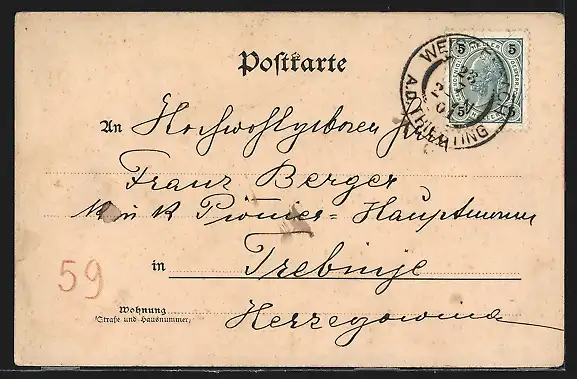 Postkarte
5 5
5 5
A.D. THIESTING
An Hochwohlgeboren Herrn
Franz Berger
K u K Pionier= Hauptmann
in Trebinje
59
Wohnung
(Straße und Hausnummer)
Herzegowina